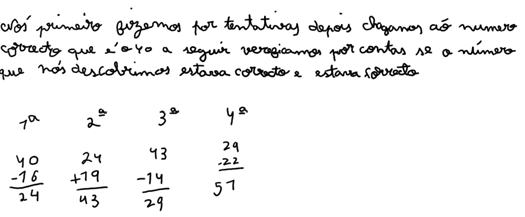 Nós primeiro fizemos por tentativas depois chegamos aó numero
correcto que e´ o 40 a seguir verefiamos por contas se o número
que nós descobrimos estava correcto e estava correcto
1ª 2ª 3ª 4ª
40 24 43 29
-16 +19 -14 -22
24 43 29 51